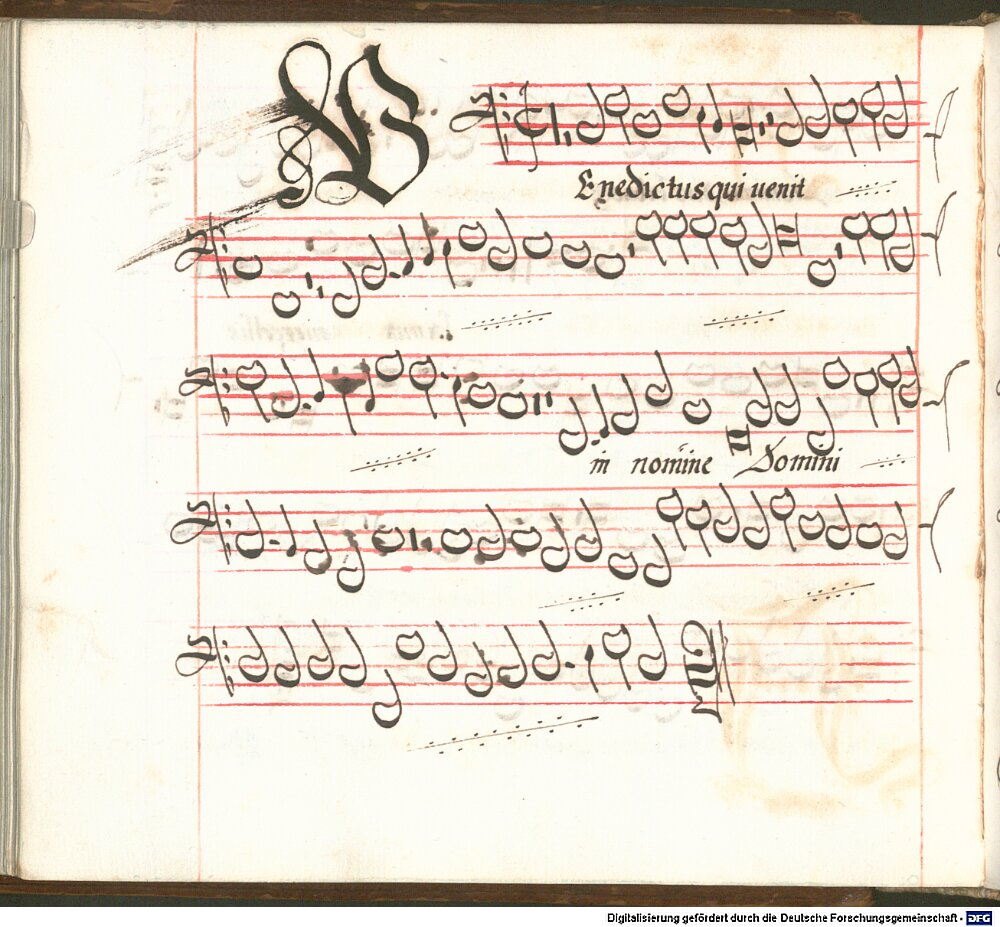 BEnedictus qui uenit
in nomine Domini
Digitalisierung gefördert durch die Deutsche Forschungsgemeinschaft - DFG